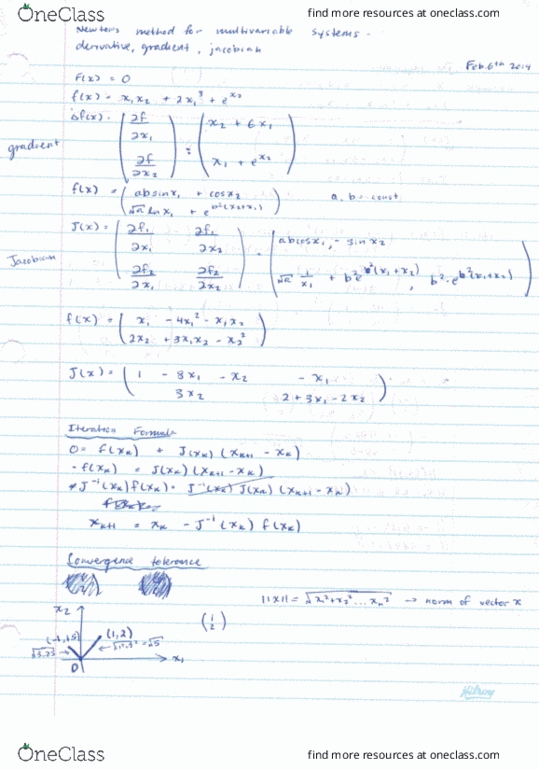 OneClass
find more resources at oneclass.com
Newton's method for multivariable systems -
derivative, gradient, jacobian
Feb. 6th 2014
F(x) = 0
f(x) = x₁x₂ + 2x₁³ + e^x₂
gradient
∂f/∂x₁ = x₂ + 6x₁
∂f/∂x₂ x₁ + e^x₂
f(x) = ( absinx₁ + cosx₂
√a lnx₁ + e^b²(x₂+x₁) ) a, b = const.
Jacobian
J(x) = ∂f₁/∂x₁ ∂f₁/∂x₂ = abcosx₁, - sinx₂
∂f₂/∂x₁ ∂f₂/∂x₂ √a 1/x₁ + b²e^b²(x₁+x₂), b²·e^b²(x₁+x₂)
f(x) = ( x₁ - 4x₁² - x₁x₂
2x₂ + 3x₁x₂ - x₂² )
J(x) = ( 1 - 8x₁ - x₂ - x₁
3x₂ 2 + 3x₁ - 2x₂ )
Iteration Formula
0 = f(xₖ) + J(xₖ)(xₖ₊₁ - xₖ)
- f(xₖ) = J(xₖ)(xₖ₊₁ - xₖ)
J⁻¹(xₖ)f(xₖ) = J⁻¹(xₖ) J(xₖ)(xₖ₊₁ - xₖ)
xₖ₊₁ = xₖ - J⁻¹(xₖ) f(xₖ)
Convergence tolerance
||x|| = √x₁²+x₂²...xₙ² → norm of vector x
x₂
(1,2)
(1
2)
√1²+2² = √5
√3.25
0
x₁
Hilroy
OneClass
find more resources at oneclass.com